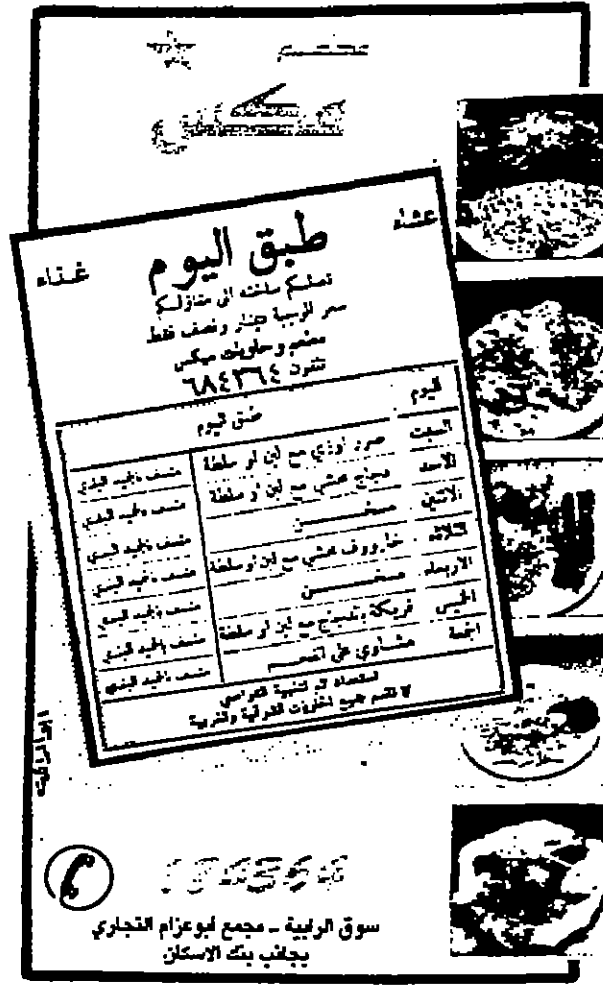 مطعم
عشاء
غداء
طبق اليوم
تصلكم ساخنة الى منازلكم
سعر الوجبة دينار ونصف فقط
مطعم وحلويات ميكس
تلفون ٦٨٤٣٦٤
اليوم طبق اليوم
السبت اوزي مع لبن او سلطة منسف بالجميد البلدي
الاحد دجاج محشي مع لبن او سلطة منسف بالجميد البلدي
الاثنين مسخن منسف بالجميد البلدي
الثلاثاء خاروف محشي مع لبن او سلطة منسف بالجميد البلدي
الاربعاء مسخن منسف بالجميد البلدي
الخميس فريكة بالدجاج مع لبن او سلطة منسف بالجميد البلدي
الجمعة مشاوي على الفحم منسف بالجميد البلدي
استعداد تام لتلبية التواصي
جميع الحلويات الشرقية والغربية
سوق الرابية - مجمع ابو عزام التجاري
بجانب بنك الاسكان